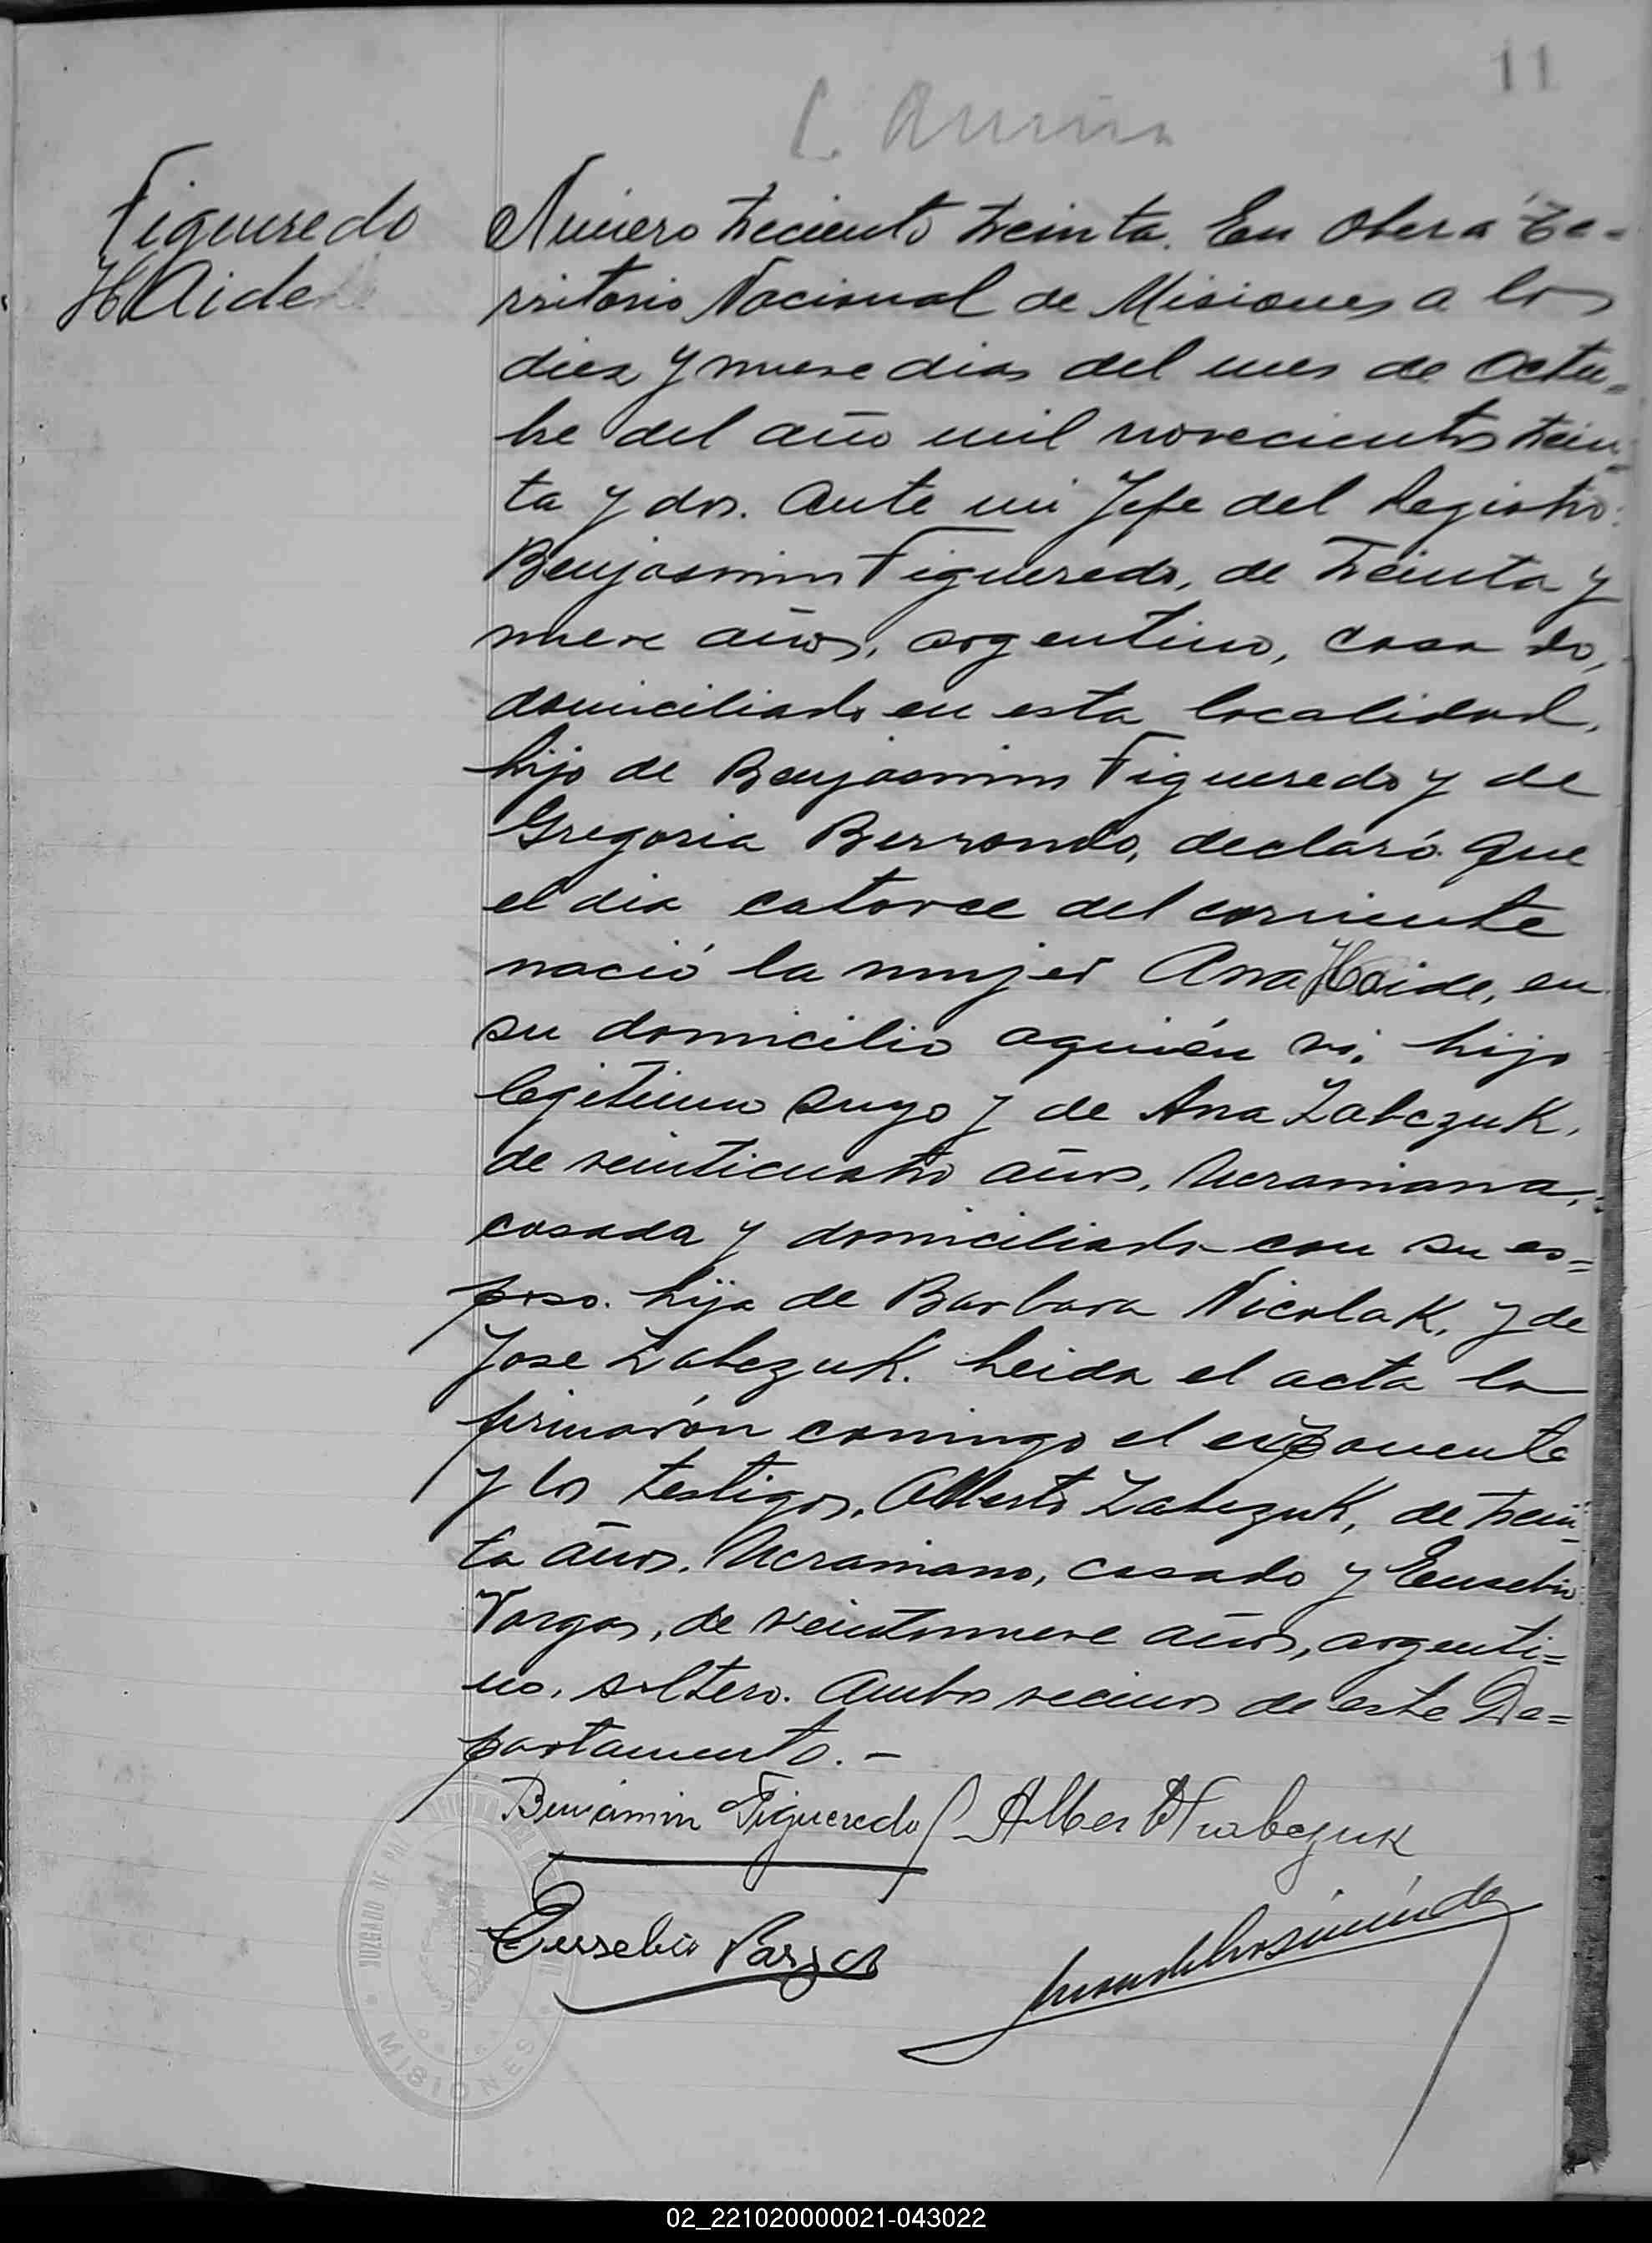 11
Figueredo
HAide
Número treciento treinta. En Oberá Te=
rritorio Nacional de Misiones a los
diez y nueve dias del mes de Octu=
bre del año mil novecientos trein=
ta y dos. Ante mi Jefe del Registro:
Benjasmin Figueredo, de treinta y
nueve años, argentino, casado,
domiciliado en esta localidad,
hijo de Benjasmin Figueredo y de
Gregoria Berrondo, declaró. Que
el dia catorce del corriente
nació la mujer Ana Haide, en
su domicilio aquién vi, hijo
legitimo suyo y de Ana Zabczuk,
de veinticuatro años, Ucraniana,
casada y domiciliada con su es=
poso. hija de Barbara Nicolak, y de
Jose Zabczuk. Leida el acta la
firmarón conmigo el exponente
y los testigos, Alberto Zabczuk, de trein=
ta años. Ucraniano, casado y Eusebio
Vargas, de veintinueve años, argenti=
no, soltero. Ambos vecinos de este De=
partamento. -
Benjamin Figueredo Alberto Trabczuk
Eusebio Vargas
JUZGADO DE PAZ
MISIONES
02_221020000021-043022